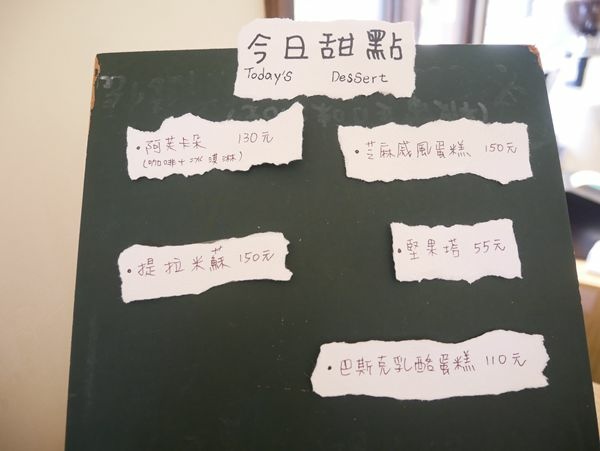 今日甜點
Today's Dessert
•阿芙卡朵 130元
(咖啡+冰淇淋)
•芝麻戚風蛋糕 150元
•提拉米蘇 150元
•堅果塔 55元
•巴斯克乳酪蛋糕 110元